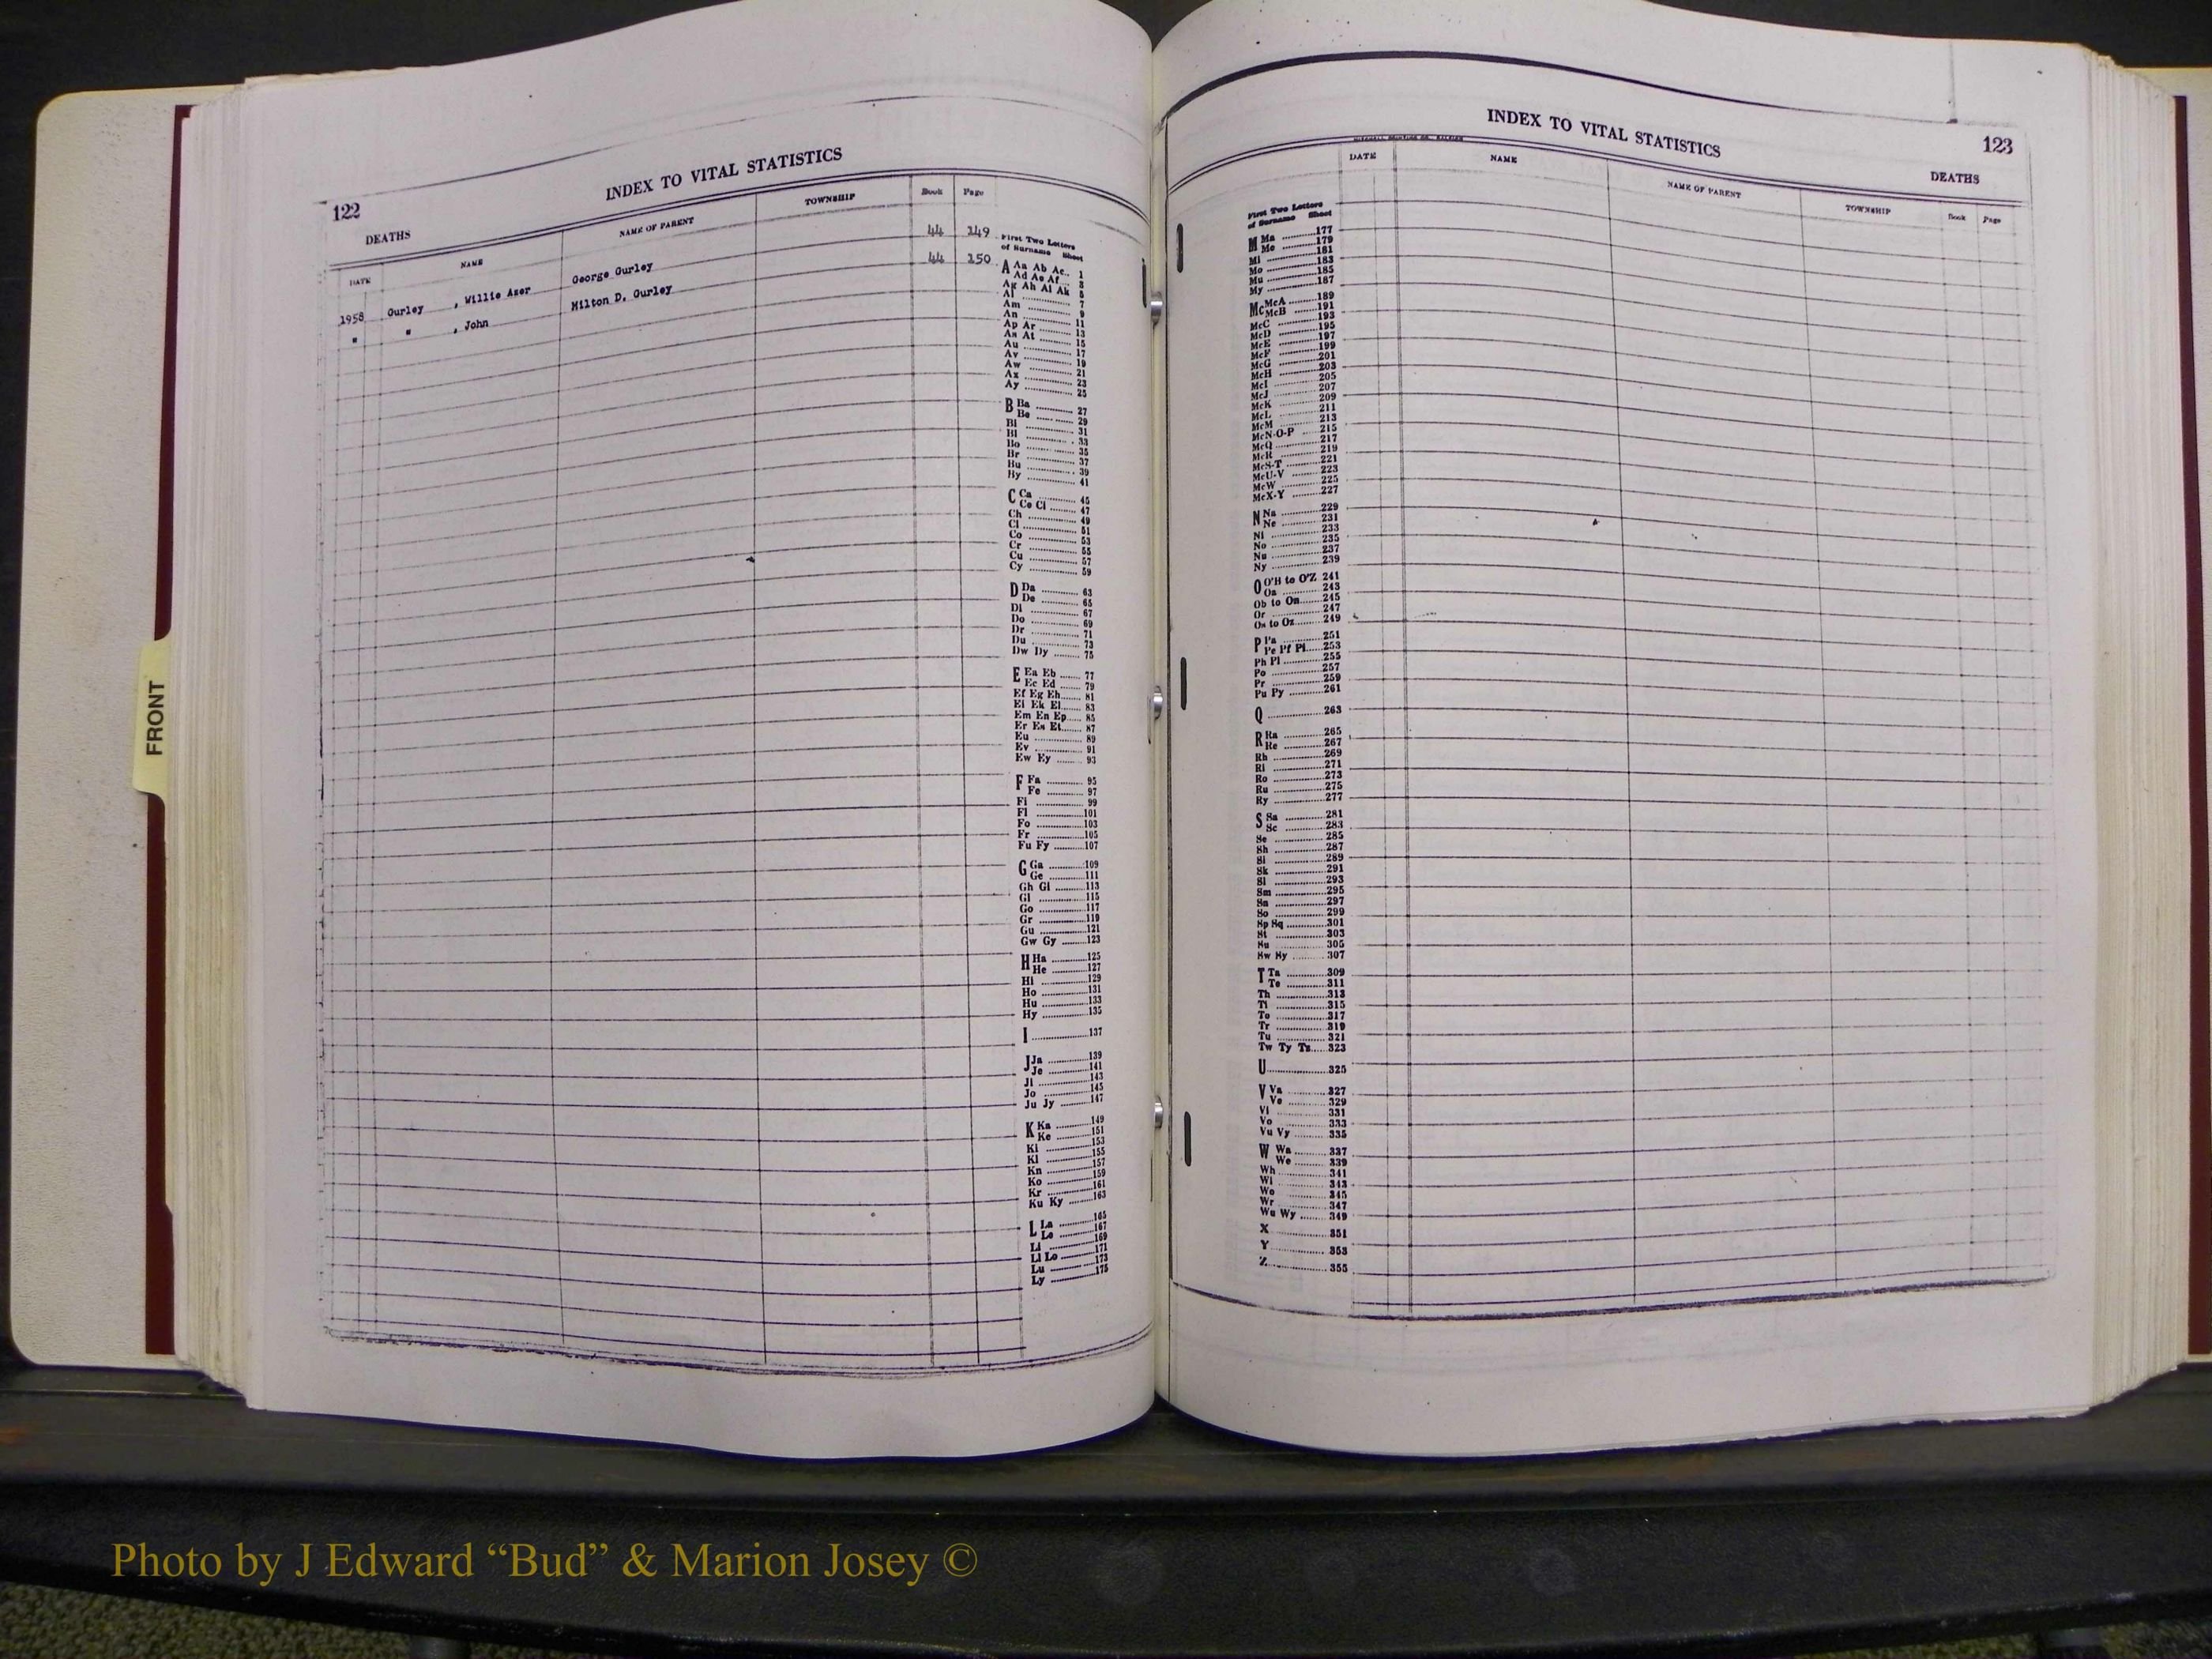 122
INDEX TO VITAL STATISTICS
DEATHS
DATE NAME NAME OF PARENT TOWNSHIP Book Page
1958 Gurley , Willie Azer George Gurley 44 149
" " , John Milton D. Gurley 44 150
First Two Letters
of Surname Sheet
A Aa Ab Ac.. 1
Ad Ae Af... 3
Ag Ah Ai Ak 5
Al ........ 7
Am ........ 9
An ........ 11
Ap Ar ........ 13
As At ........ 15
Au ........ 17
Av ........ 19
Aw ........ 21
Ax ........ 23
Ay ........ 25
B Ba ........ 27
Be ........ 29
Bi ........ 31
Bl ........ 33
Bo ........ 35
Br ........ 37
Bu ........ 39
By ........ 41
C Ca ........ 45
Ce Ci ........ 47
Ch ........ 49
Cl ........ 51
Co ........ 53
Cr ........ 55
Cu ........ 57
Cy ........ 59
D Da ........ 63
De ........ 65
Di ........ 67
Do ........ 69
Dr ........ 71
Du ........ 73
Dw Dy ........ 75
E Ea Eb ...... 77
Ec Ed ...... 79
Ef Eg Eh...... 81
Ei Ek El...... 83
Em En Ep..... 85
Er Es Et...... 87
Eu ........ 89
Ev ........ 91
Ew Ey ........ 93
F Fa ........ 95
Fe ........ 97
Fi ........ 99
Fl ........101
Fo ........103
Fr ........105
Fu Fy ........107
G Ga ........109
Ge ........111
Gh Gi ........113
Gl ........115
Go ........117
Gr ........119
Gu ........121
Gw Gy ........123
H Ha ........125
He ........127
Hi ........129
Ho ........131
Hu ........133
Hy ........135
I ........137
J Ja ........139
Je ........141
Ji ........143
Jo ........145
Ju Jy ........147
K Ka ........149
Ke ........151
Ki ........153
Kl ........155
Kn ........157
Ko ........159
Kr ........161
Ku Ky ........163
L La ........165
Le ........167
Li ........169
Ll Lo ........171
Lu ........173
Ly ........175
INDEX TO VITAL STATISTICS
123
DEATHS
DATE NAME NAME OF PARENT TOWNSHIP Book Page
First Two Letters
of Surname Sheet
M Ma ........177
Me ........179
Mi ........181
Mo ........183
Mu ........185
My ........187
Mc McA ........189
McB ........191
McC ........193
McD ........195
McE ........197
McF ........199
McG ........201
McH ........203
McI ........205
McJ ........207
McK ........209
McL ........211
McM ........213
McN-O-P ........215
McQ ........217
McR ........219
McS-T ........221
McU-V ........223
McW ........225
McX-Y ........227
N Na ........229
Ne ........231
Ni ........233
No ........235
Nu ........237
Ny ........239
O O'H to O'Z 241
Oa ........243
Ob to On......245
Or ........247
Os to Oz......249
P Pa ........251
Pe Pf Pi....253
Ph Pl ........255
Po ........257
Pr ........259
Pu Py ........261
Q ........263
R Ra ........265
Re ........267
Rh ........269
Ri ........271
Ro ........273
Ru ........275
Ry ........277
S Sa ........281
Sc ........283
Se ........285
Sh ........287
Si ........289
Sk ........291
Sl ........293
Sm ........295
Sn ........297
So ........299
Sp Sq ........301
St ........303
Su ........305
Sw Sy ........307
T Ta ........309
Te ........311
Th ........313
Ti ........315
To ........317
Tr ........319
Tu ........321
Tw Ty Tz.....323
U ........325
V Va ........327
Ve ........329
Vi ........331
Vo ........333
Vu Vy ........335
W Wa ........337
We ........339
Wh ........341
Wi ........343
Wo ........345
Wr ........347
Wu Wy ........349
X ........351
Y ........353
Z ........355
FRONT
Photo by J Edward “Bud” & Marion Josey ©